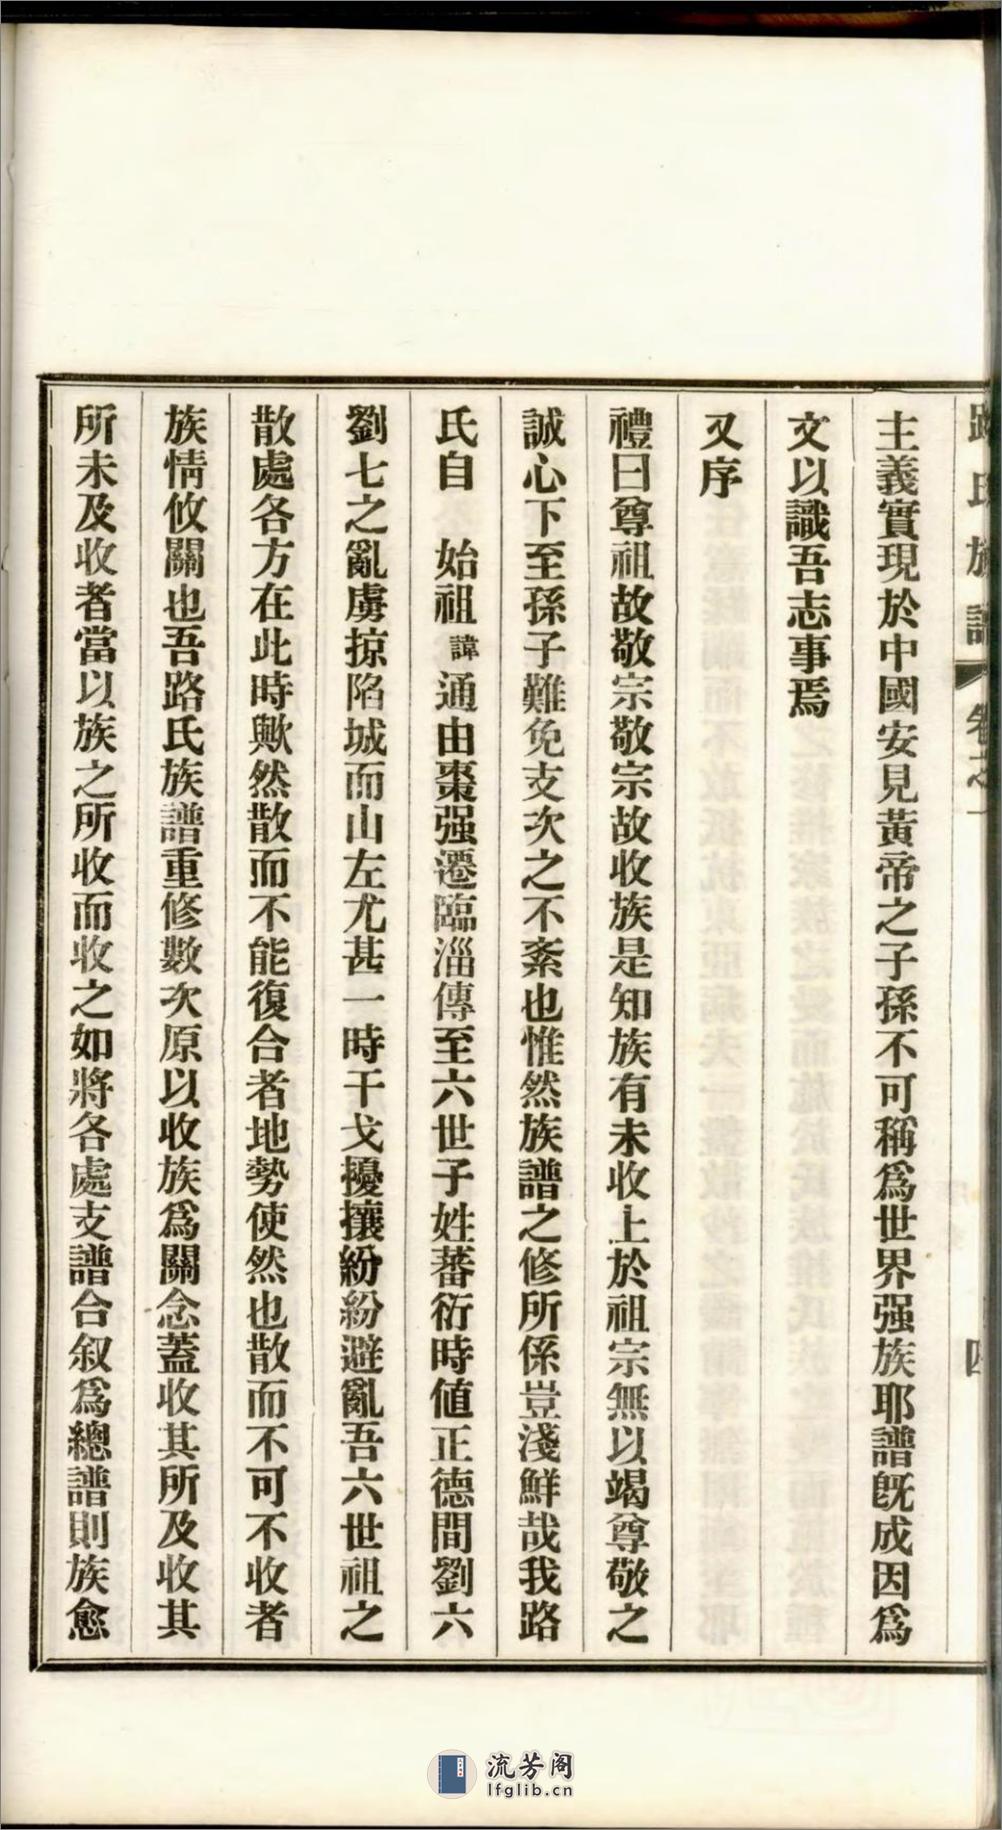 路氏族譜 卷之一 四
主義實現於中國安見黃帝之子孫不可稱爲世界强族耶譜旣成因爲
文以識吾志事焉
又序
禮曰尊祖故敬宗敬宗故收族是知族有未收上於祖宗無以竭尊敬之
誠心下至孫子難免支次之不紊也惟然族譜之修所係豈淺鮮哉我路
氏自　始祖諱通由棗强遷臨淄傳至六世子姓蕃衍時値正德間劉六
劉七之亂虜掠陷城而山左尤甚一時干戈擾攘紛紛避亂吾六世祖之
散處各方在此時歟然散而不能復合者地勢使然也散而不可不收者
族情攸關也吾路氏族譜重修數次原以收族爲關念蓋收其所及收其
所未及收者當以族之所收而收之如將各處支譜合叙爲總譜則族愈
流芳阁
lfglib.cn